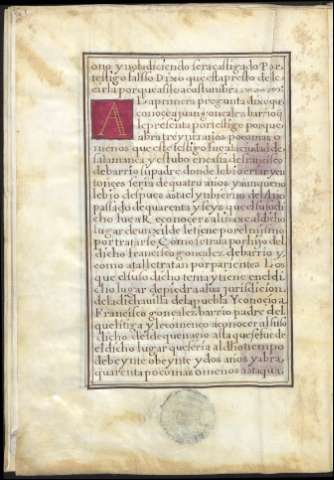 ono y no lo diciendo sera castigado Por
testigo falsso Dixo que esta presto de de
cirla porque assi lo acostumbra
A La primera pregunta dixo que
conoce a juan gonzalez barrio q
le presenta por testigo porque
abra treynta años poco mas o
menos que este testigo fue a la ciudad de
salamanca y estubo en casa de francisco
de barrio su padre donde le bio criar y en
tonces seria de quatro años y aun que no
le bio despues asta el ynbierno del año
passado de quarenta y seys que el susodi
cho fue a Reconocer a su casa al dicho
lugar de le tiene por el mismo
por tratarse Como se trata por hijo del
dicho francisco gonzalez de barrio y
como a tal le tratan por parientes Los
que el susodicho tema y tiene en el di
cho lugar de piedra alua jurisdicion
de la dicha villa de la puebla Y conocio a
Francisco gonzalez barrio padre del
que litiga y le comenco a conocer al suso
dicho desde que nacio asta que se fue de
el dicho lugar que seria al dicho tiempo
de beynte o beynte y dos años y abra
quarenta poco mas o menos asta que